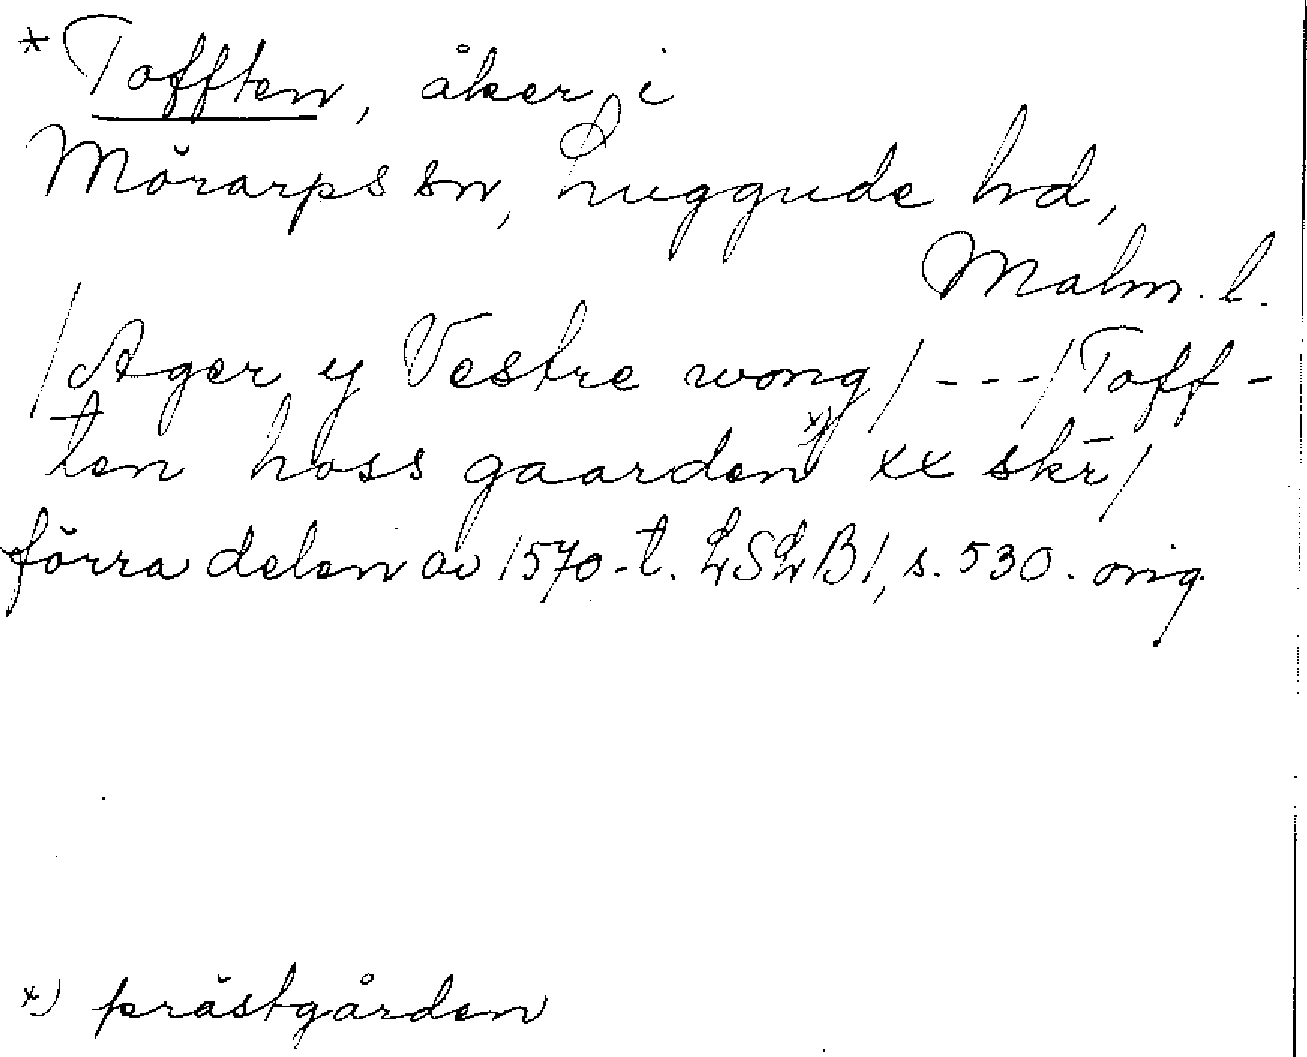 * Tofften, åker i
Mörarps sn, Luggude hd,
Malm. l.
/Ager y Vestre wong/ - - - /Toff-
ten hoss gaarden x) xx skr̄/
förra delen av 1570-t. LSLB1, s. 530. orig.
x) prästgården